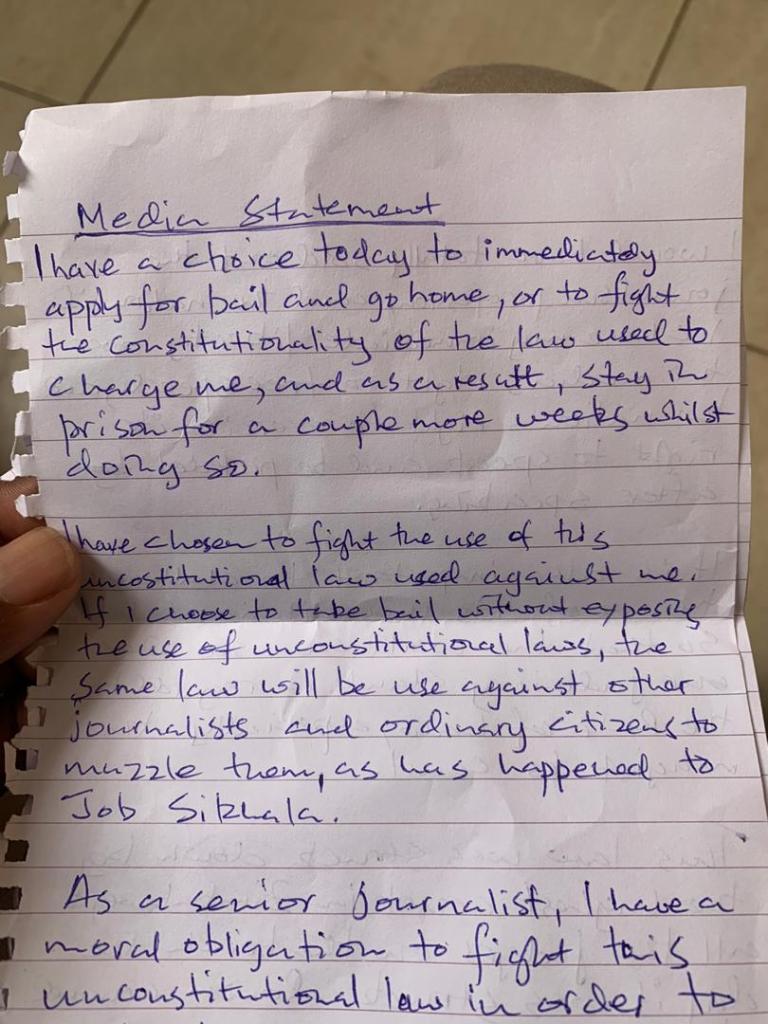 Media Statement
I have a choice today to immediately
apply for bail and go home, or to fight
the constitutionality of the law used to
charge me, and as a result, stay in
prison for a couple more weeks whilst
doing so.
I have chosen to fight the use of this
uncostitutional law used against me.
If I choose to take bail without exposing
the use of unconstitutional laws, the
same law will be use against other
journalists and ordinary citizens to
muzzle them, as has happened to
Job Sikhala.
As a senior journalist, I have a
moral obligation to fight this
unconstitutional law in order to